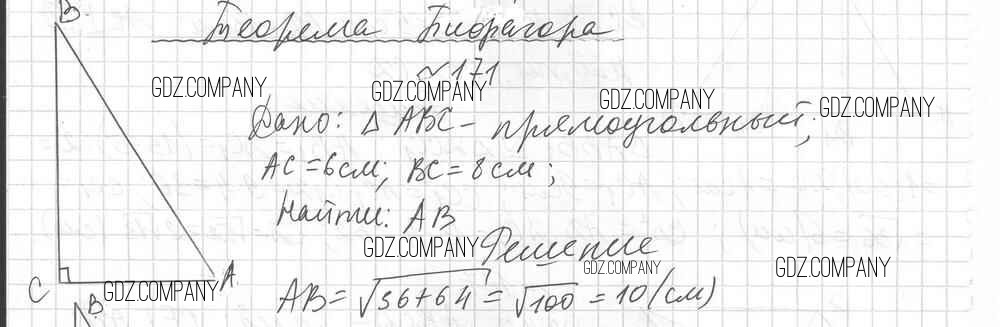 Теорема Пифагора
№171
GDZ.COMPANY GDZ.COMPANY GDZ.COMPANY GDZ.COMPANY
Дано: Δ ABC - прямоугольный;
AC = 6 см; BC = 8 см;
Найти: AB
GDZ.COMPANY Решение
GDZ.COMPANY GDZ.COMPANY
AB = √36+64 = √100 = 10 (см)
B
C
A
GDZ.COMPANY
B